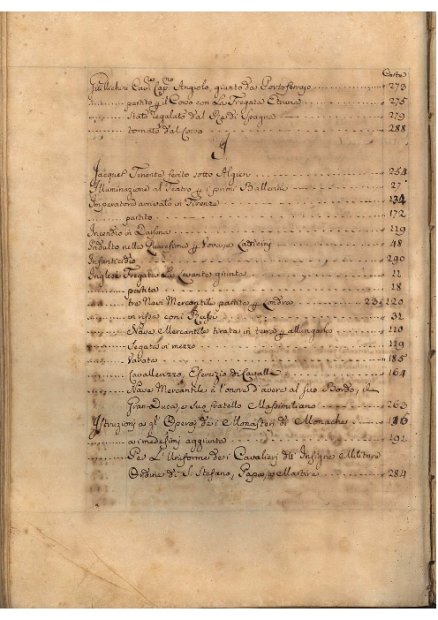 Carte
Cav. Cap. Angiolo, giunto da Portoferrajo 273
partito p. il Corso con la Fregata Etruria 275
Stato regalato dal Rè di Spagna 279
tornato dal Corso 288
I
Jacquet Tenente ferito sotto Algieri 254
Illuminazione al Teatro p. i primi Ballerini 27
Imperatore arrivato in Firenze 134
partito 172
Incendio in 119
Indulto nella Quaresima p. 48
Infanticidio 290
Inglesi Fregata da Levante giunta 11
partita 18
tre Navi Mercantili partite p. Londra 120
in rissa con i Russi 31
Nave Mercantile tirata in terra p. allungarsi 110
Segata in mezzo 119
Varata 185
Cavallerizzo, Esercizio di Cavalli 164
Nave Mercantile è l'onore d'avere al suo Bordo, il
Gran-Duca, e Suo fratello Massimiliano 263
Istruzioni a gl'Operaj de i Monasteri di Monache 186
a i medesimi aggiunte 192
Per l'Uniforme de i Cavalieri dell' Insigne Militare
Ordine di S. Stefano, Papa, e Martire 284